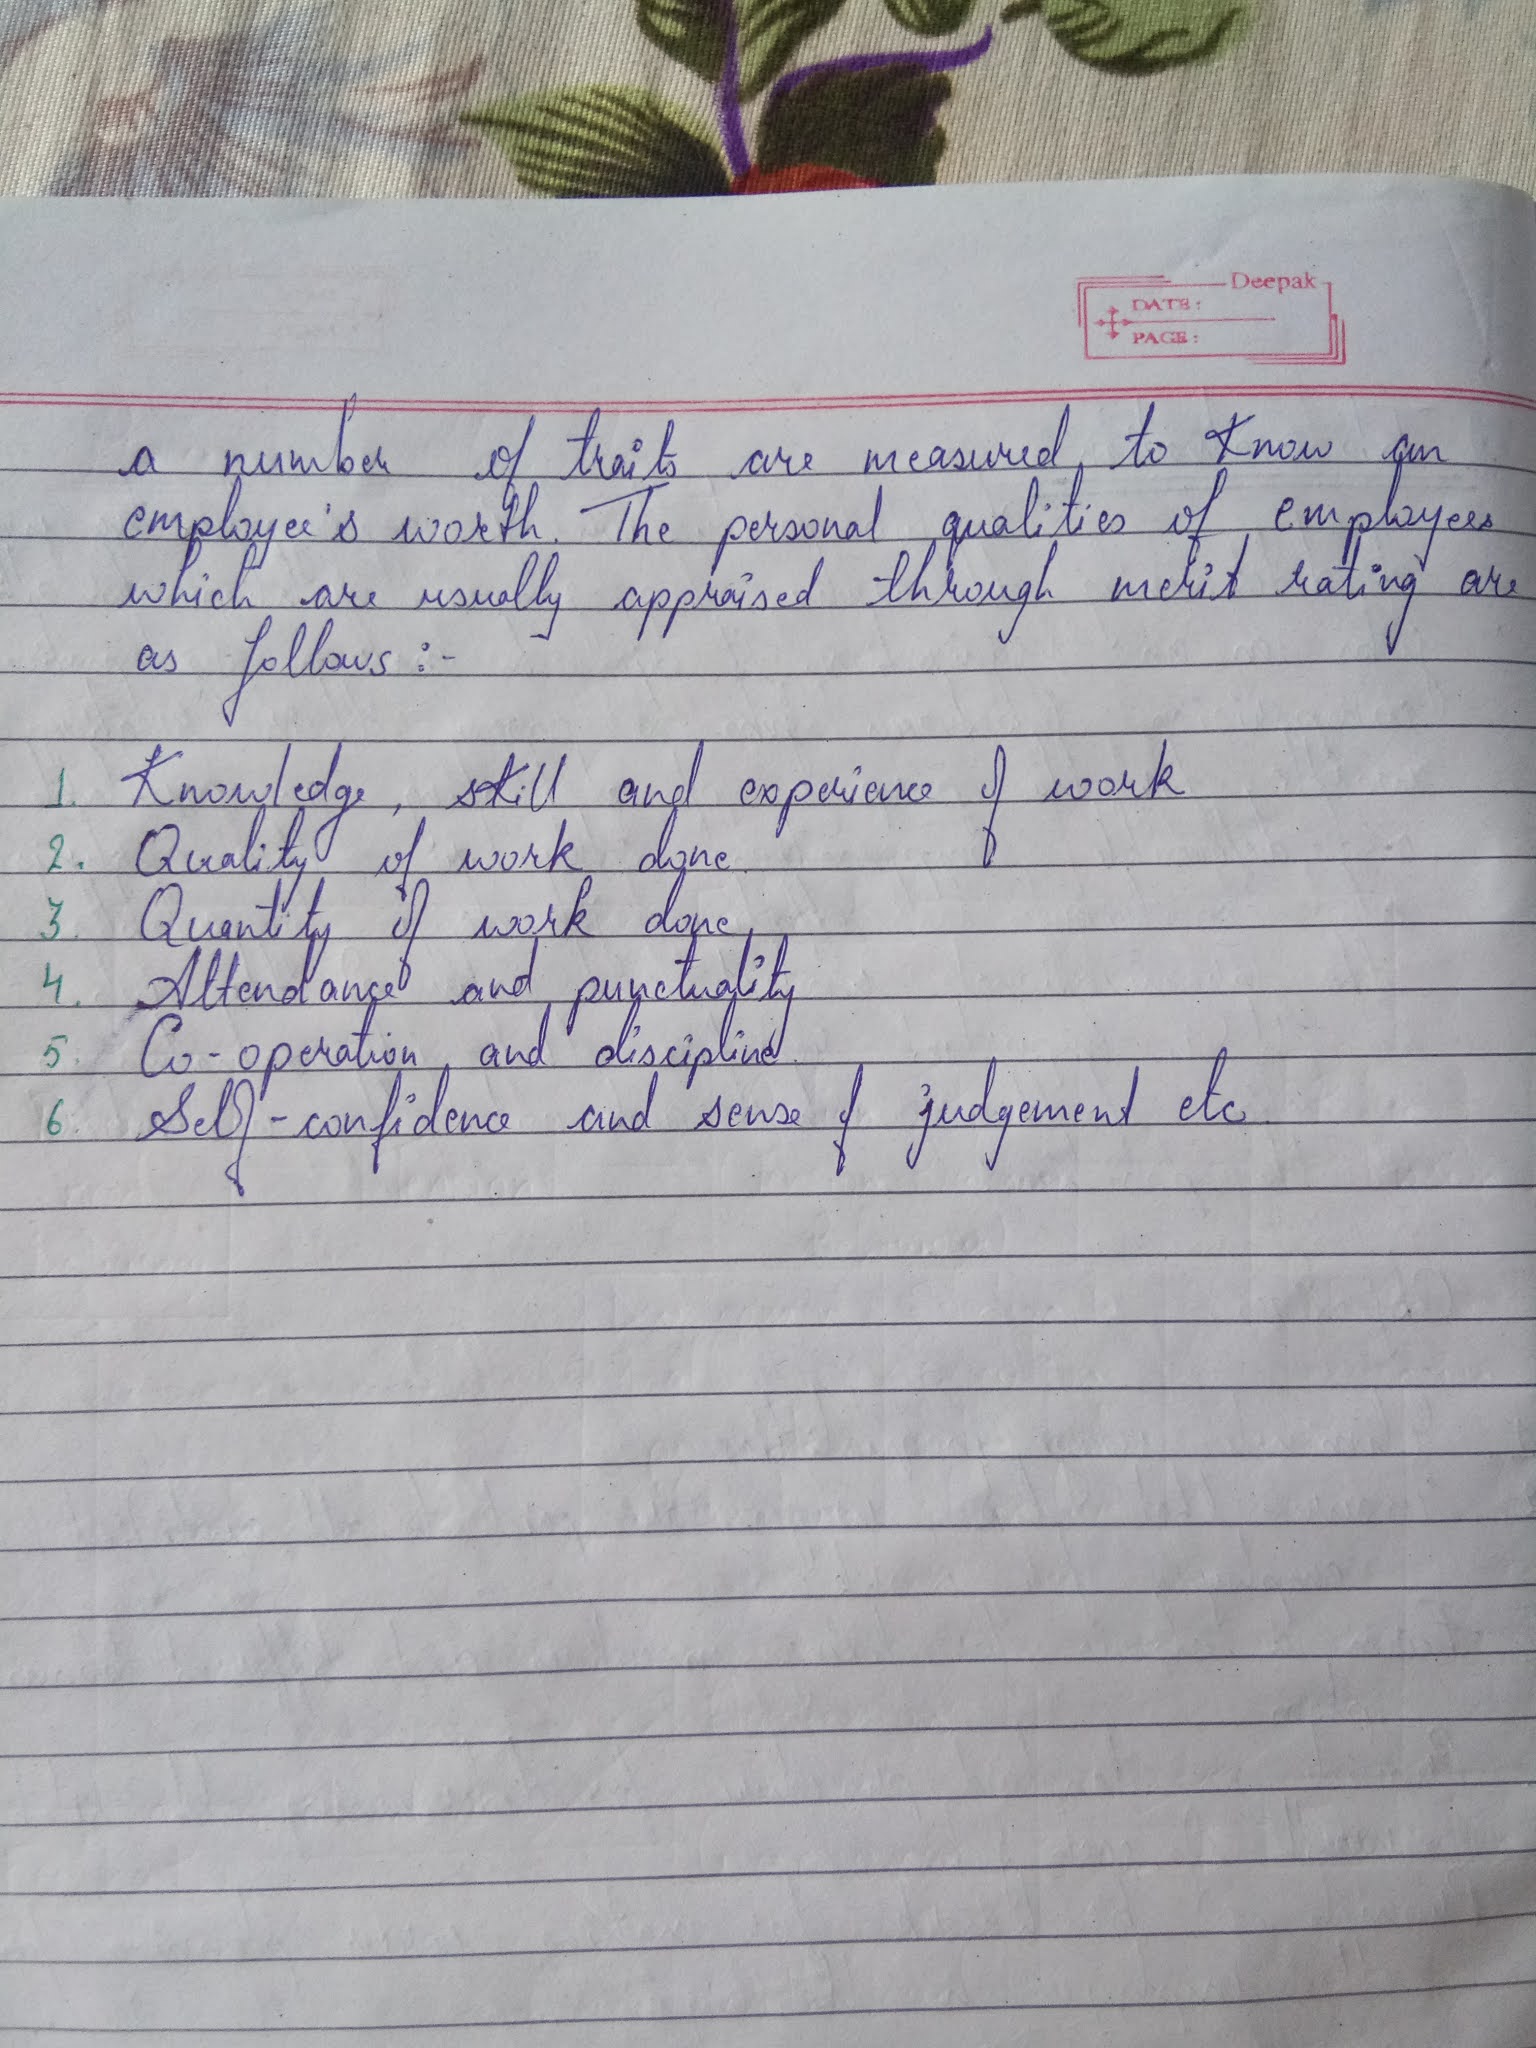 Deepak
DATE:
PAGE:
a number of traits are measured to know an
employee's worth. The personal qualities of employees
which are usually appraised through merit rating are
as follows :-
1. Knowledge, skill and experience of work
2. Quality of work done.
3. Quantity of work done.
4. Attendance and punctuality
5. Co-operation and discipline.
6. Self-confidence and sense of judgement etc.